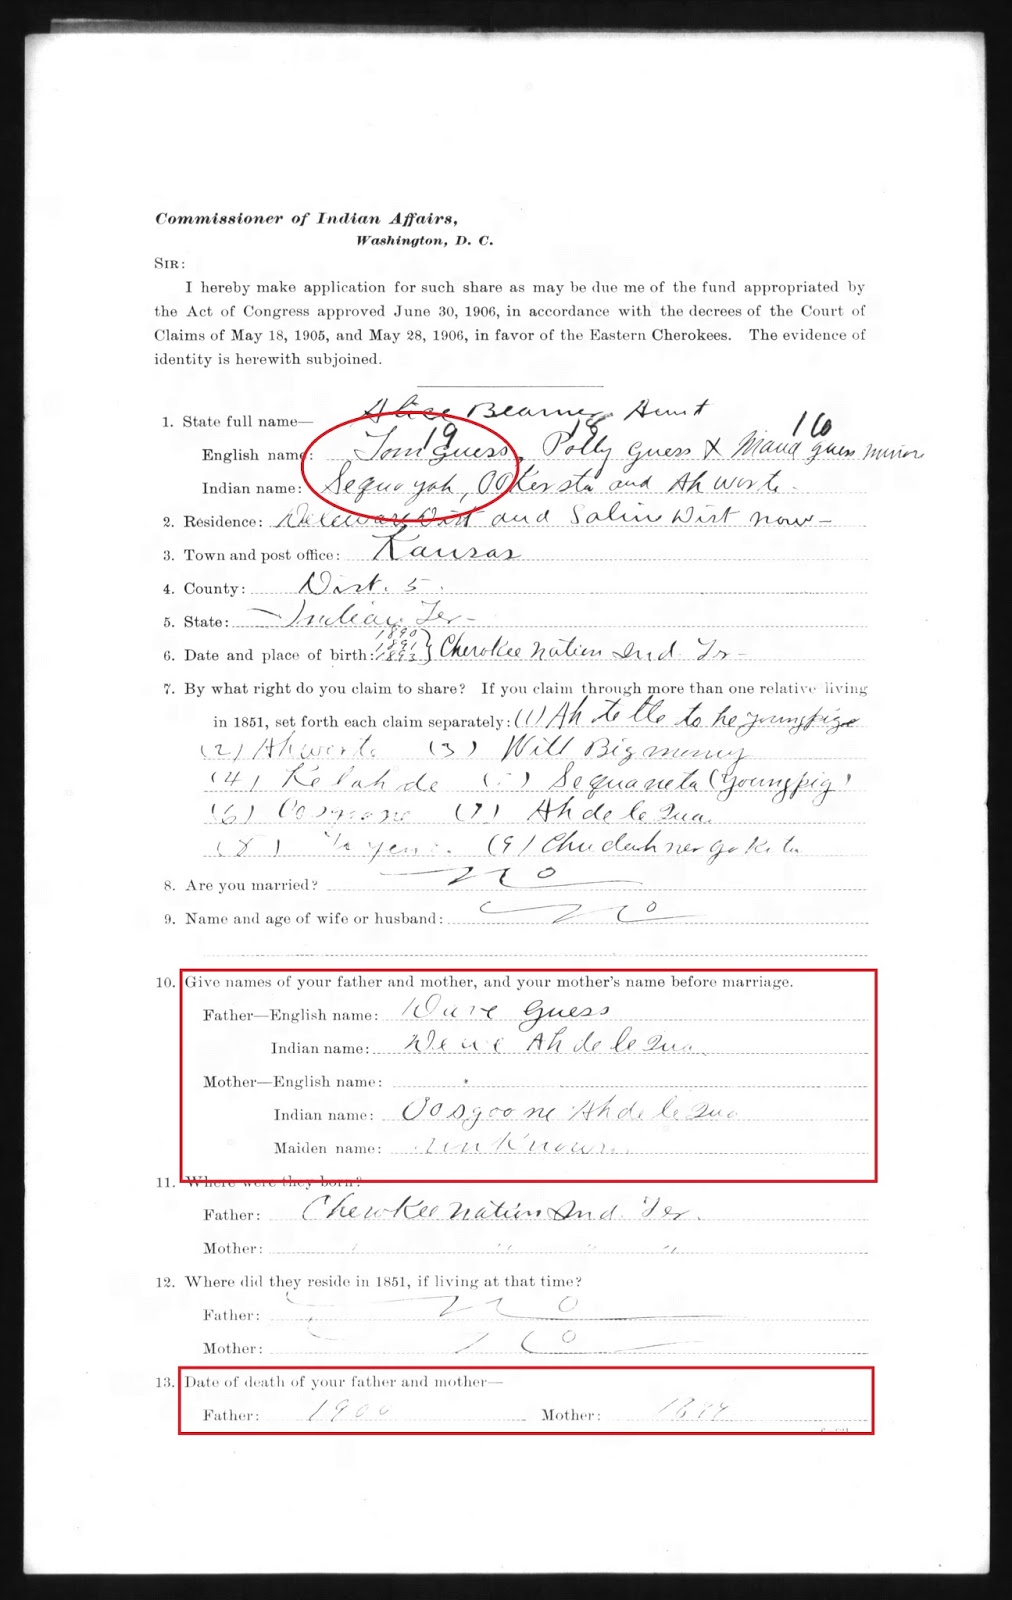 Commissioner of Indian Affairs,
Washington, D. C.
SIR:
I hereby make application for such share as may be due me of the fund appropriated by
the Act of Congress approved June 30, 1906, in accordance with the decrees of the Court of
Claims of May 18, 1905, and May 28, 1906, in favor of the Eastern Cherokees. The evidence of
identity is herewith subjoined.
Alice Beamer Aunt
1. State full name—
19 18 16
English name: Tom Guess, Polly Guess & Maud Guess minor
Indian name: Sequoyah, OOKersta and Ah worte.
2. Residence: Deleware Dist and Salin Dist now-
3. Town and post office: Kansas
4. County: Dist. 5.
5. State: Indian Ter-
1890
1891
6. Date and place of birth: 1893 } Cherokee Nation Ind. Tr-
7. By what right do you claim to share? If you claim through more than one relative living
in 1851, set forth each claim separately: (1) Ah te tle to he youngpig
(2) Ahworte (3) Will Bigmoney
(4) Ke lah de (5) Sequaneta (youngpig)
(6) (7) Ah de le Qua.
(8) (9) Chudahnergokita
8. Are you married? no
9. Name and age of wife or husband: no
10. Give names of your father and mother, and your mother's name before marriage.
Father—English name: Dave Guess
Indian name: Ah de le Qua
Mother—English name:
Indian name: Oosgoone Ah de le Qua
Maiden name: unKnown
11. Where were they born?
Father: Cherokee Nation Ind. Ter.
Mother: " " " "
12. Where did they reside in 1851, if living at that time?
Father: no
Mother: no
13. Date of death of your father and mother—
Father: 1900 Mother: